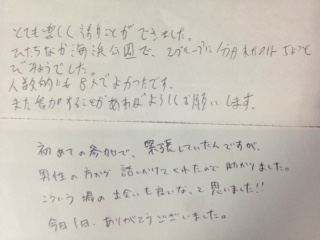 とても楽しく話すことができました。
ひたちなか海浜公園で、2グループに分かれたのは
びみょうでした。
人数的にも8人でよかったです。
また会がすることがあればよろしくお願いします。
初めての参加で、緊張していたんですが、
男性の方から話しかけてくれたので助かりました。
こういう場の出会いも良いな、って思いました!!
今日1日、ありがとうございました。